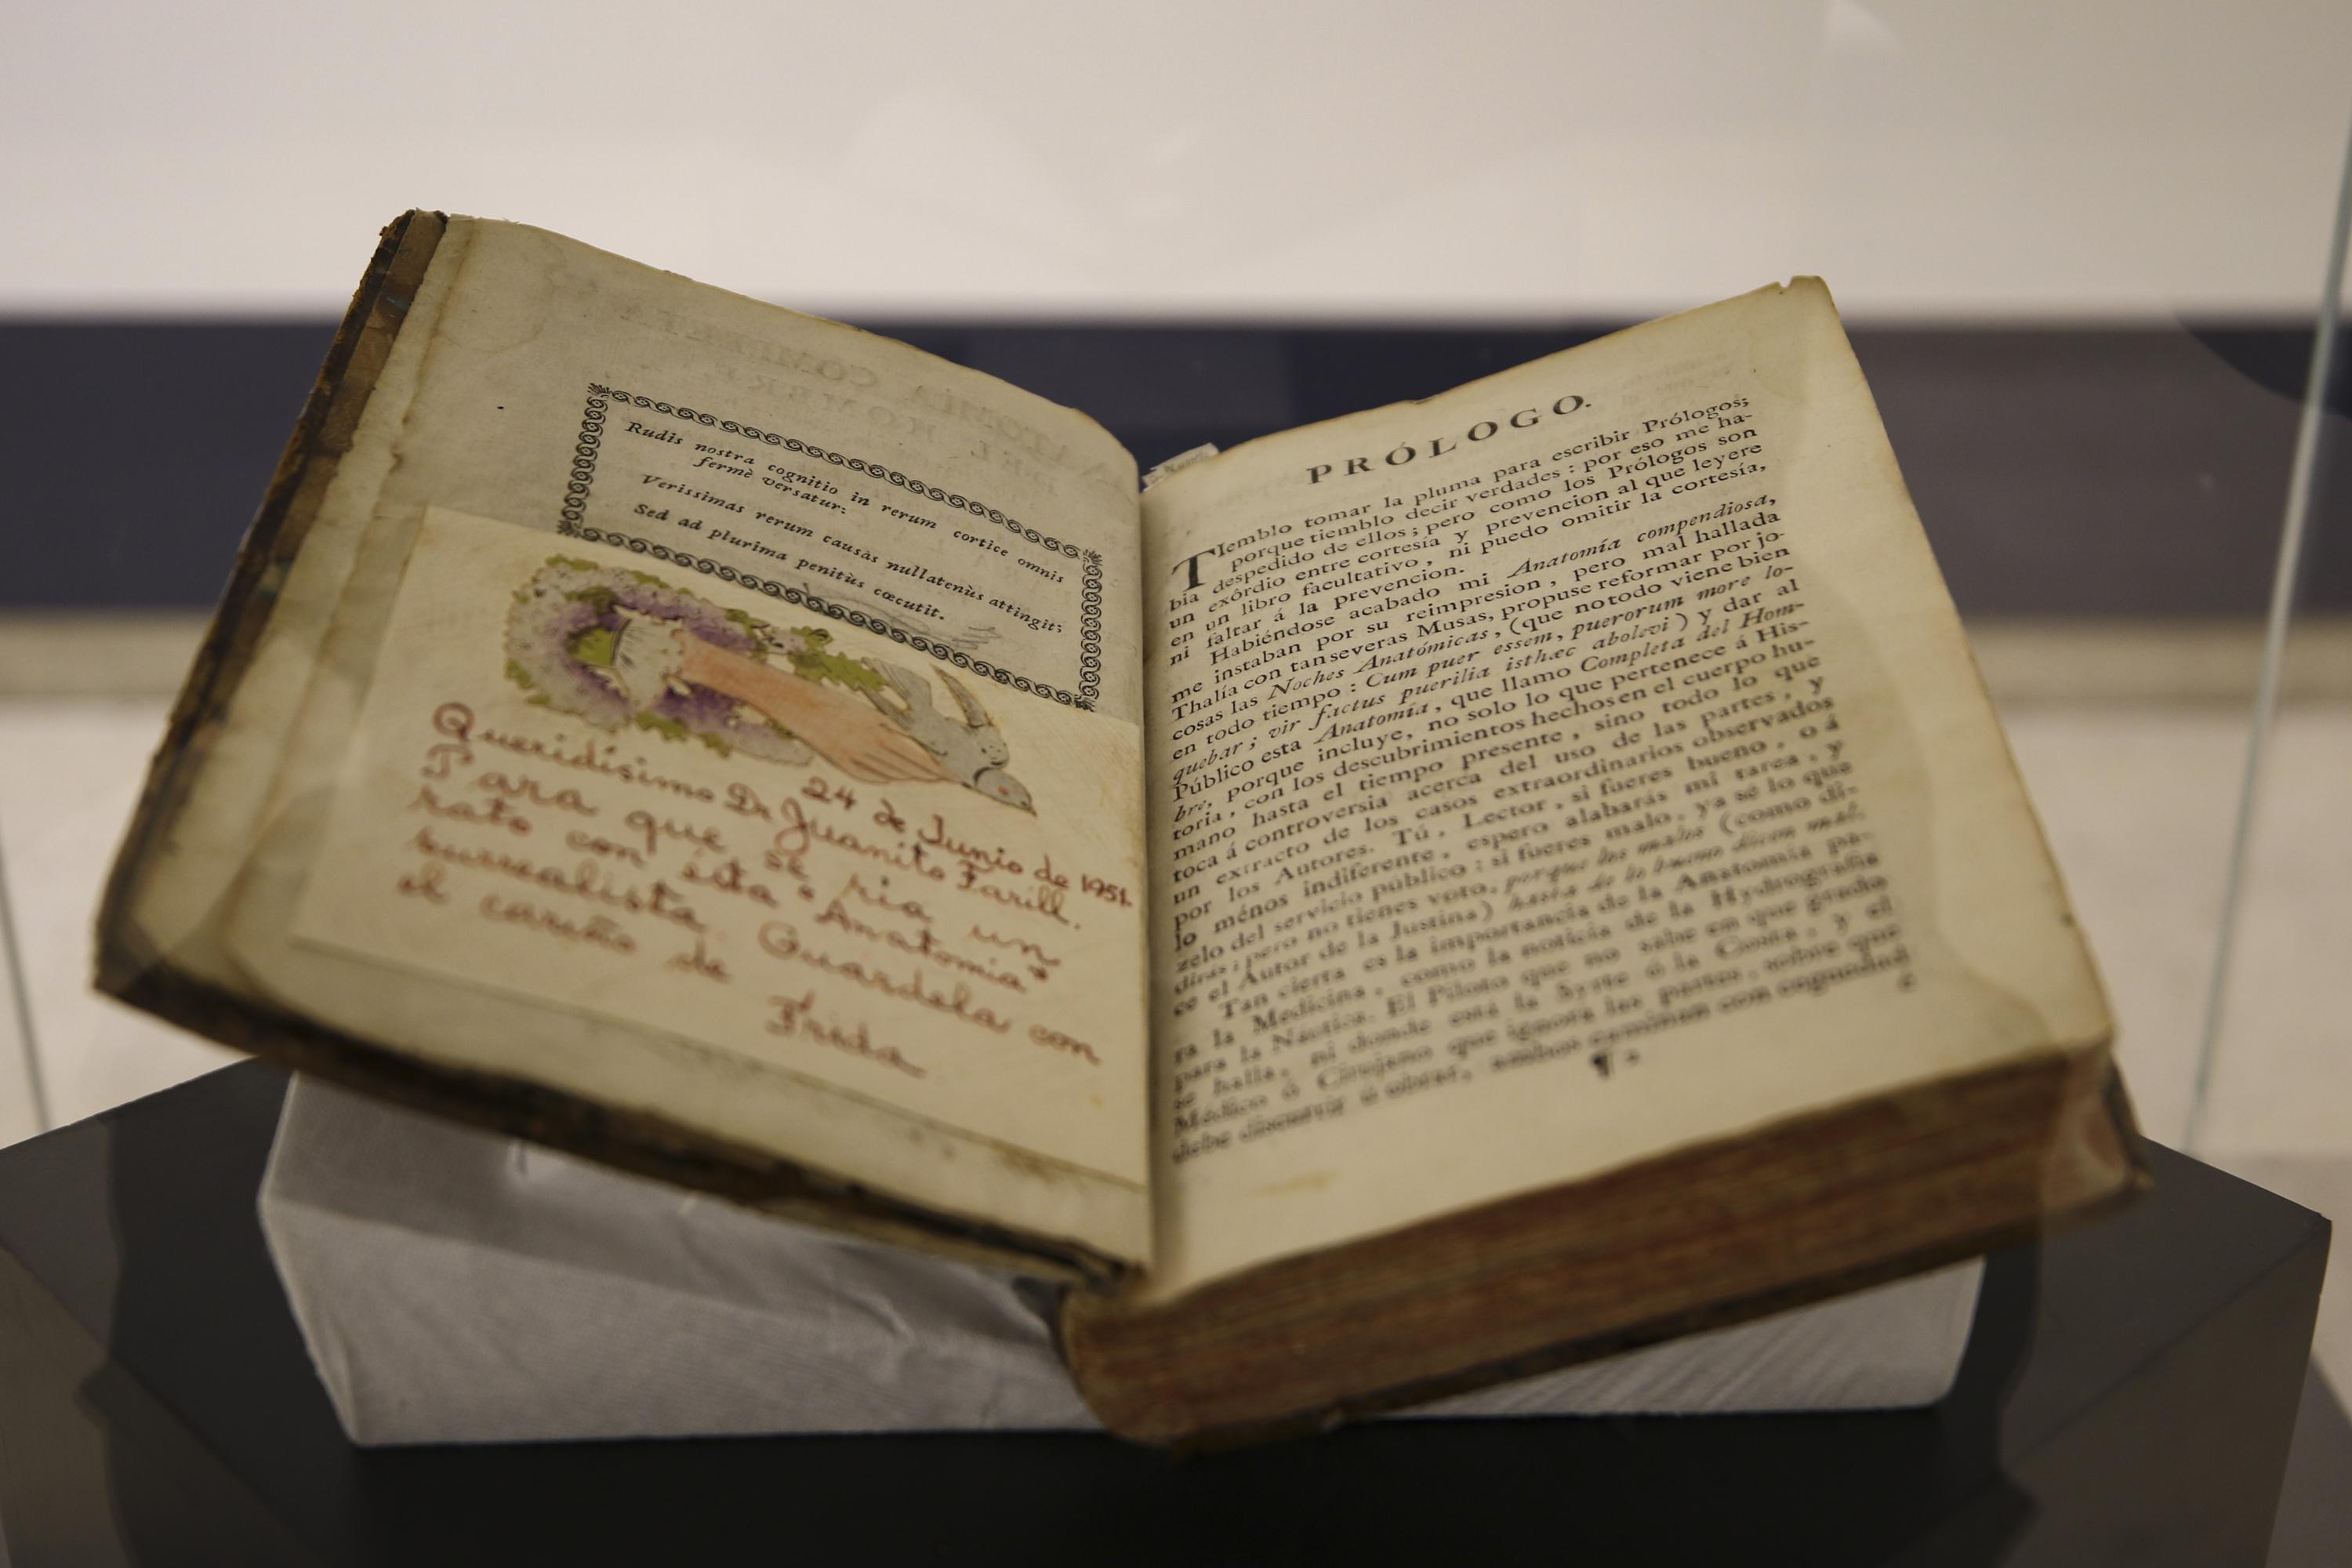 Rudis nostra cognitio in rerum cortice omnis
fermè versatur:
Verissimas rerum causàs nullatenùs attingit;
Sed ad plurima penitùs cœcutit.
24 de Junio de 1951.
Queridisimo Dr Juanito Farill.
Para que se ria un
rato con ésta "Anatomia"
surrealista. Guardela con
el cariño de
Frida
PRÓLOGO.
Tiemblo tomar la pluma para escribir Prólogos;
porque tiemblo decir verdades: por eso me ha-
bia despedido de ellos; pero como los Prólogos son
un exôrdio entre cortesía y prevencion al que leyere
en un libro facultativo, ni puedo omitir la cortesía,
ni faltar á la prevencion.
Habiéndose acabado mi Anatomía compendiosa,
me instaban por su reimpresion, pero mal hallada
Thalía con tan severas Musas, propuse reformar por jo-
cosas las Noches Anatómicas, (que no todo viene bien
en todo tiempo: Cum puer essem, puerorum more lo-
quebar; vir factus puerilia isthæc abolevi) y dar al
Público esta Anatomía, que llamo Completa del Hom-
bre, porque incluye, no solo lo que pertenece á His-
toria, con los descubrimientos hechos en el cuerpo hu-
mano hasta el tiempo presente, sino todo lo que
toca á controversia acerca del uso de las partes, y
un extracto de los casos extraordinarios observados
por los Autores. Tú, Lector, si fueres bueno, o á
lo ménos indiferente, espero alabarás mi tarea, y
zelo del servicio público: si fueres malo, ya sé lo que
dirás; pero no tienes voto, porque los malos (como di-
ce el Autor de la Justina) hasta de lo bueno dicen mal.
Tan cierta es la importancia de la Anatomía pa-
ra la Medicina, como la noticia de la Hydrografía
para la Náutica. El Piloto que no sabe en que grado
se halla, ni donde está la Syrte ó la Costa, y el
Médico ó Cirujano que ignora las partes, sobre que
debe discurrir ó obrar, ambos caminan con
¶ 2